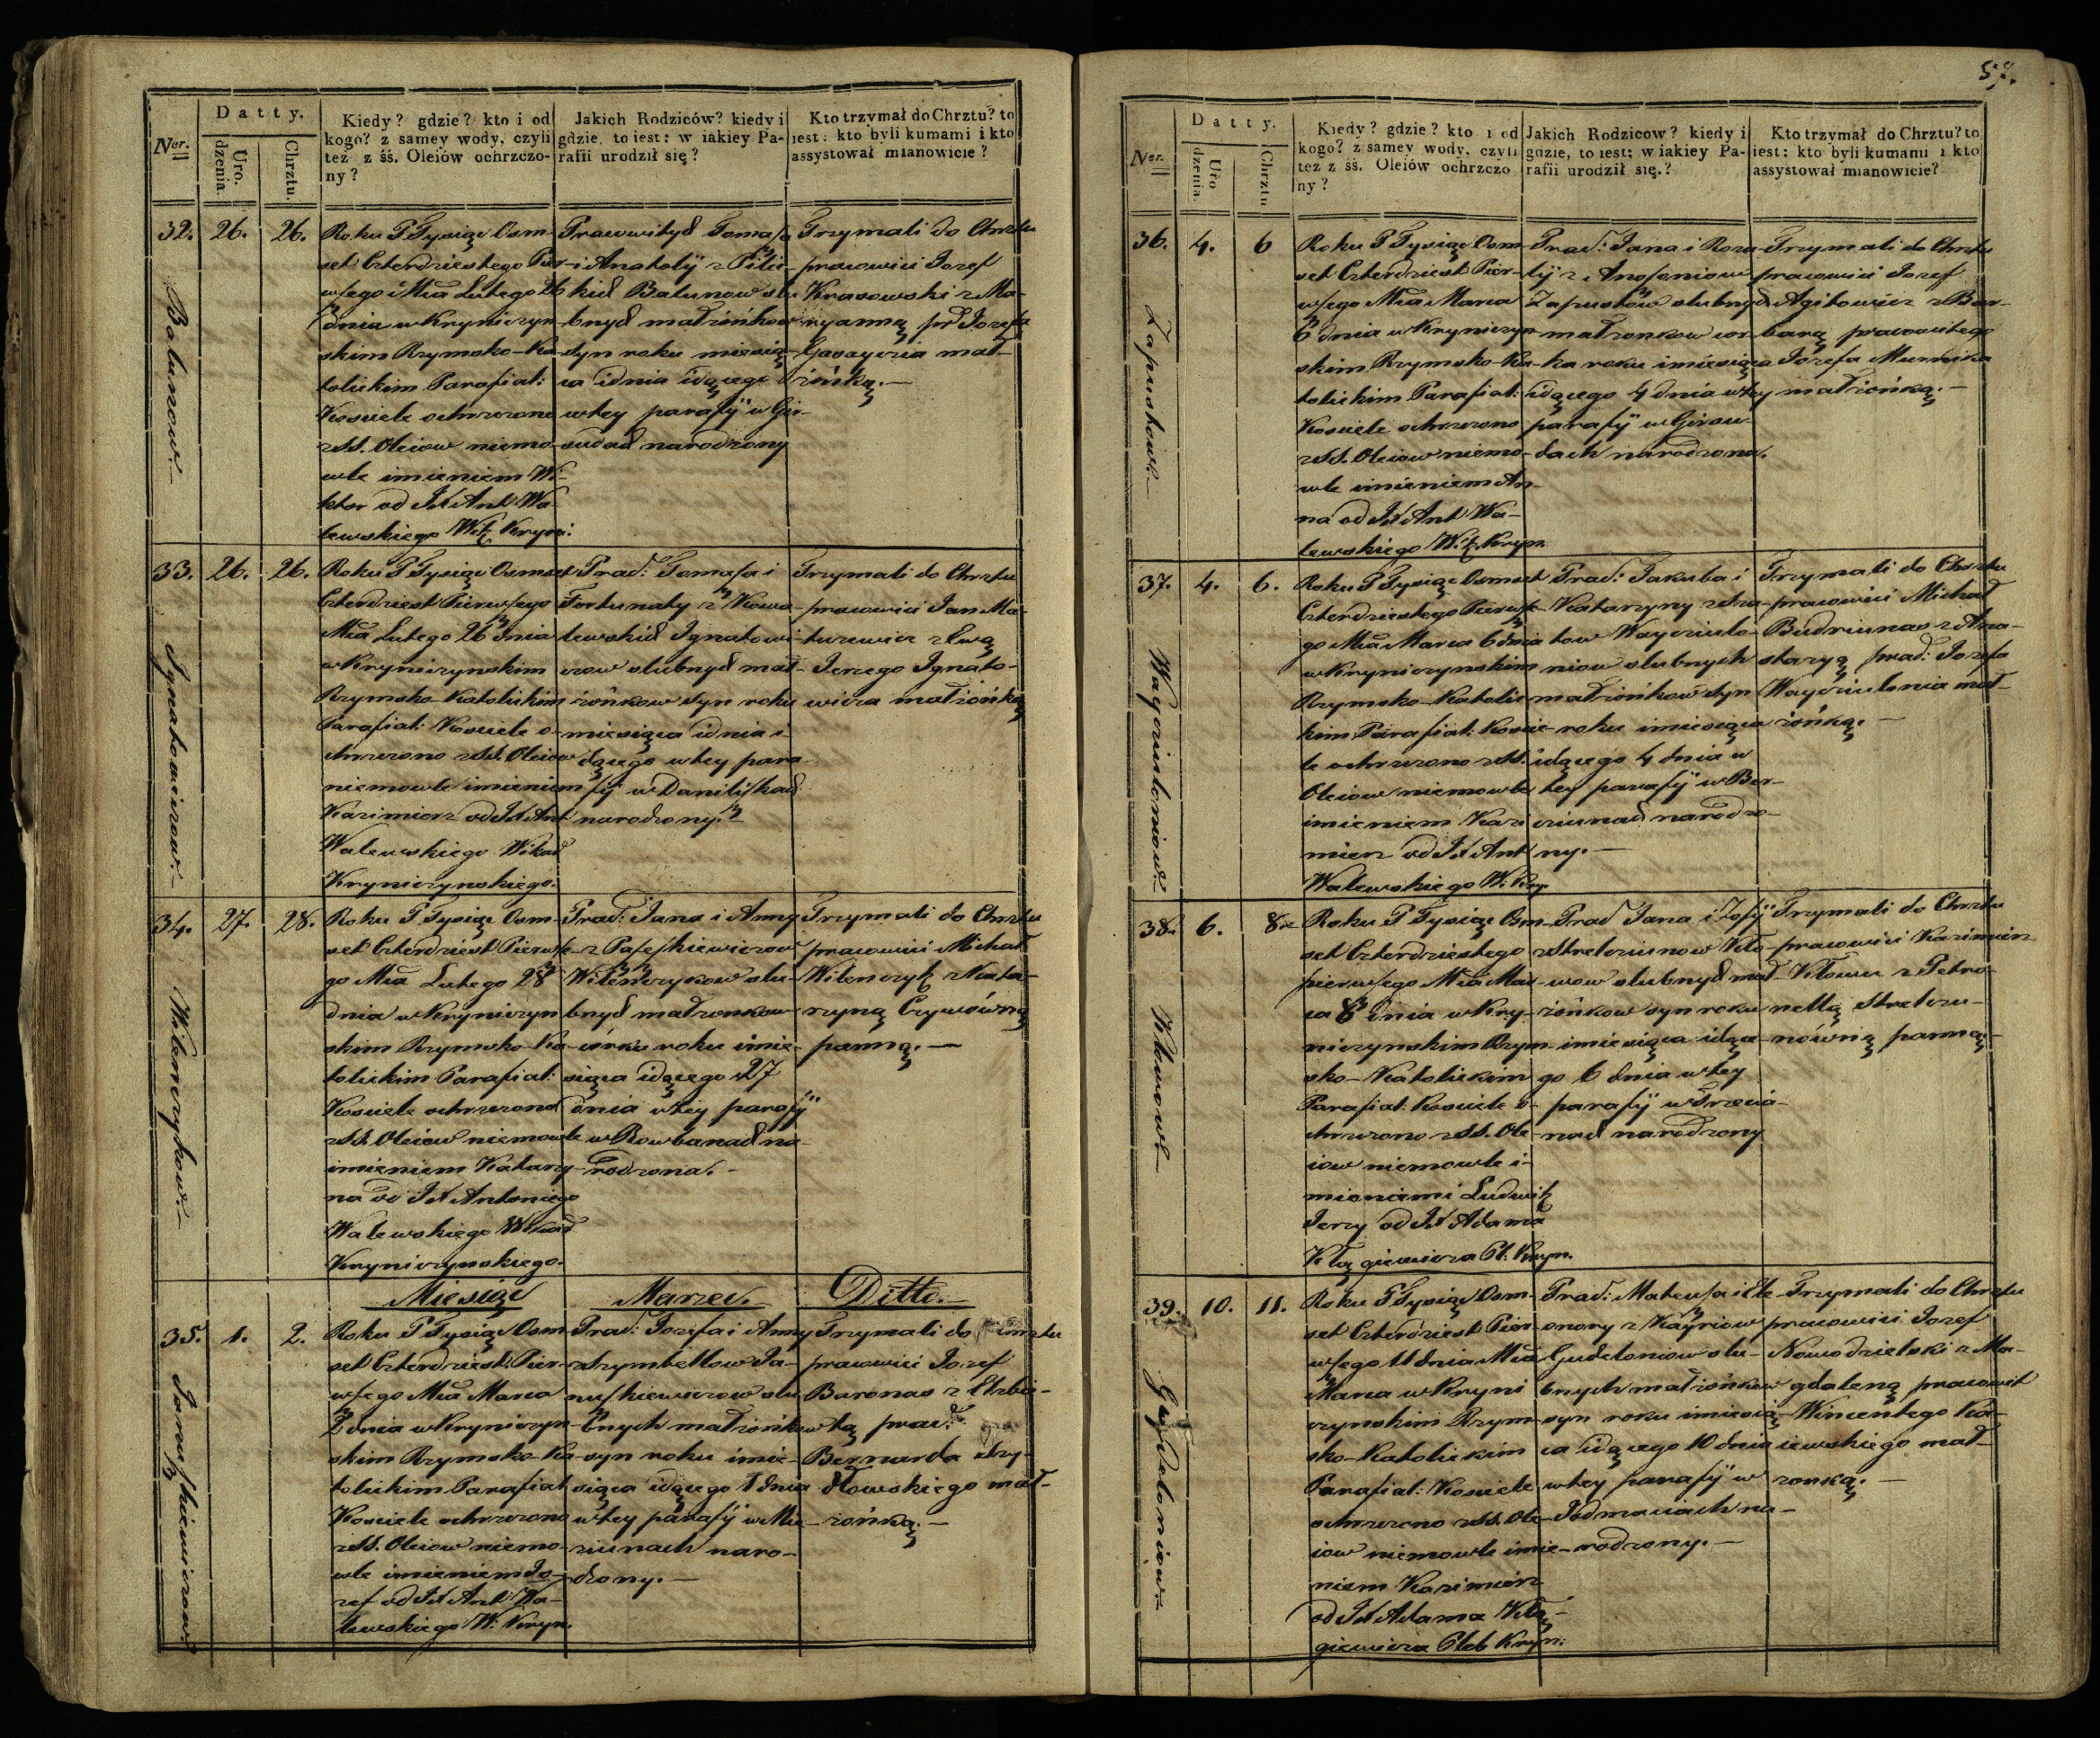 Datty.
Ner.
Uro.
dzenia.
Chrztu.
Kiedy? gdzie? kto i od
kogo? z samey wody, czyli
tez z śś. Oleiów ochrzczo-
ny?
Jakich Rodziców? kiedy i
gdzie, to iest: w iakiey Pa-
rafii urodził się?
Kto trzymał do Chrztu? to
iest: kto byli kumami i kto
assystował mianowicie?
32. 26. 26.
Balunow.
Roku P Tysiąc Osm-
set Czterdziestego Pier-
wszego i Mca Lutego 26
dnia w Kryniczyn-
skim Rzymsko-Ka-
tolickim Parafial:
Kosciele ochrzczono
z SS. Oleiow niemo-
wle imieniem Wi-
ktor od JX Ant: Wa-
lewskiego Wik Kryni:
Prawowitych Tomasza
i Anatolÿ z Pilic-
kich Balunow slu-
bnych małżonkow
syn roku miesią-
ca i dnia idącego
w tey parafÿ w Gir-
sudach narodzony
Trzymali do Chrztu
pracowici Jozef
Krasowski z Ma-
ryanną pr Jozefa
Gasayczia mał-
żonką.
33. 26. 26.
Ignatowiczow.
Roku P Tysiąc Osmset
Czterdziest Pierwszego
Mca Lutego 26 dnia
w Krynirzynskim
Rzymsko-Katolickim
Parafial: Kosciele o-
chrzczono z SS. Oleiow
niemowle imieniem
Kazimierz od JX Ant
Walewskiego Wikar
Kryniczynskiego.
Prad: Tomasza i
Fortunaty z Kowa-
lewskich Ignatowi-
czow slubnych mał-
żonkow syn roku
miesiąca i dnia i-
dącego w tey para-
fÿ w Daniliszkach
narodzony.
Trzymali do Chrztu
pracowici Jan Ma-
tusewicz z Ewą
Jerzego Ignato-
wicza małżonką
34. 27. 28.
Wilenczykow.
Roku P Tysiąc Osm-
set Czterdziest Pierwsze-
go Mca Lutego 28
dnia w Kryniczyn
skim Rzymsko-Ka-
tolickim Parafial:
Kosciele ochrzczono
z SS. Oleiow niemowle
imieniem Katarzy-
na od JX Antoniego
Walewskiego Wikar
Kryniczynskiego.
Prad: Jana i Anny
z Paszkiewiczow
Wilenczykow slu-
bnych małzonkow
córka roku i mie-
siąca idącego 27
dnia w tey parafÿ
w Rowbanach na-
rodzona.
Trzymali do Chrztu
pracowici Michał
Wilenczyk z Kata-
rzyną Czywówną
panną.
Miesiąc Marzec. Ditto.
35. 1. 2.
Januszkiewiczow.
Roku P Tysiąc Osm
set Czterdziest Pier-
wszego Mca Marca
2 dnia w Kryniczyn-
skim Rzymsko-Ka-
tolickim Parafial
Kosciele ochrzczono
z SS. Oleiow niemo-
wle imieniem Jo-
zef od JX Ant: Wa-
lewskiego W: Kryn.
Prad: Jozefa i Anny
z Irymbellow Ja-
nuszkiewiczow slu
bnych małżonkow
syn roku i mie-
siąca idącego 1 dnia
w tey parafÿ w Mie-
ziunach naro-
dzony.
Trzymali do Chrztu
pracowici Jozef
Baronas z Elzbie-
tą prac:
Bernarda
mał-
żonką.
57.
Datty.
Ner.
Uro
dzenia.
Chrztu
Kiedy? gdzie? kto i od
kogo? z samey wody, czyli
tez z śś. Oleiów ochrzczo
ny?
Jakich Rodzicow? kiedy i
gdzie, to iest: w iakiey Pa-
rafii urodził się.?
Kto trzymał do Chrztu? to
iest: kto byli kumami i kto
assystował mianowicie?
36. 4. 6
Zapustow.
Roku P Tysiąc Osm-
set Czterdziest Pier-
wszego Mca Marca
6 dnia w Kryniczyn-
skim Rzymsko-Ka-
tolickim Parafial:
Kosciele ochrzczono
z SS. Oleiow niemo-
wle imieniem An-
na od JX Ant Wa-
lewskiego Wik. Kryn.
Prad: Jana i Roza-
lÿ z Anosoniow
Zapustow slubnych
małzonkow cor-
ka roku i miesiąca
idącego 4 dnia w tey
parafÿ w Girsu-
dach narodzona.
Trzymali do Chrztu
pracowici Jozef
Agitowicz z Bar-
barą pracowitego
Jozefa Murnika
małżonką.
37. 4. 6.
Wayciuloniow.
Roku P Tysiąc Osmset
Czterdziestego Pierwsze-
go Mca Marca 6 dnia
w Krynirzynskim
Rzymsko-Katolic-
kim Parafial: Koscie-
le ochrzczono z SS.
Oleiow niemowle
imieniem Kazi-
mierz od JX Ant
Walewskiego W. Kry.
Prad: Jakuba i
Katarzyny z Sza-
tow Wayciulo-
niow slubnych
małżonkow syn
roku i miesiąca
idącego 4 dnia w
tey parafÿ w Ber-
ciunach narodzo-
ny.
Trzymali do Chrztu
pracowici Michał
Budriunas z Ana-
stazyą prad: Jozefa
Wayciulonia mał-
żonką.
38. 6. 8.
Kłowow.
Roku P Tysiąc Osm-
set Czterdziestego
pierwszego Mca Mar-
ca 8 dnia w Kry-
niczynskim Rzym-
sko-Katolickim
Parafial: Kosciele o-
chrzczono z SS. Ole-
iow niemowle i-
mieniami Ludwik
Jerzy od JX Adama
Kłągiewicza Pl: Kryn.
Prad Jana i Zofÿ
z Strelciunow Kło-
wow slubnych mał-
żonkow syn roku
i miesiąca idące-
go 6 dnia w tey
parafÿ w Trzecia-
nach narodzony
Trzymali do Chrztu
pracowici Kazimierz
Kłowa z Petro-
nellą Strelciu-
nówną panną
39. 10. 11.
Gudeloniow
Roku P Tysiąc Osm-
set Czterdziest Pier-
wszego 11 dnia Mca
Marca w Kryni
czynskim Rzym-
sko-Katolickim
Parafial: Kosciele
ochrzczono z SS. Ole-
iow niemowle imie-
niem Kazimierz
od JX Adama Kłą-
giewicza Pleb Kryn:
Prad: Mateusza i Ele-
onory z Kayriow
Gudeloniow slu-
bnych małżonkow
syn roku i miesią-
ca idącego 10 dnia
w tey parafÿ w
Podmaciach na-
rodzony.
Trzymali do Chrztu
pracowici Jozef
Nowodzielski z Ma-
gdaleną pracowit
Wincentego Ka-
iewskiego mał-
zonką.